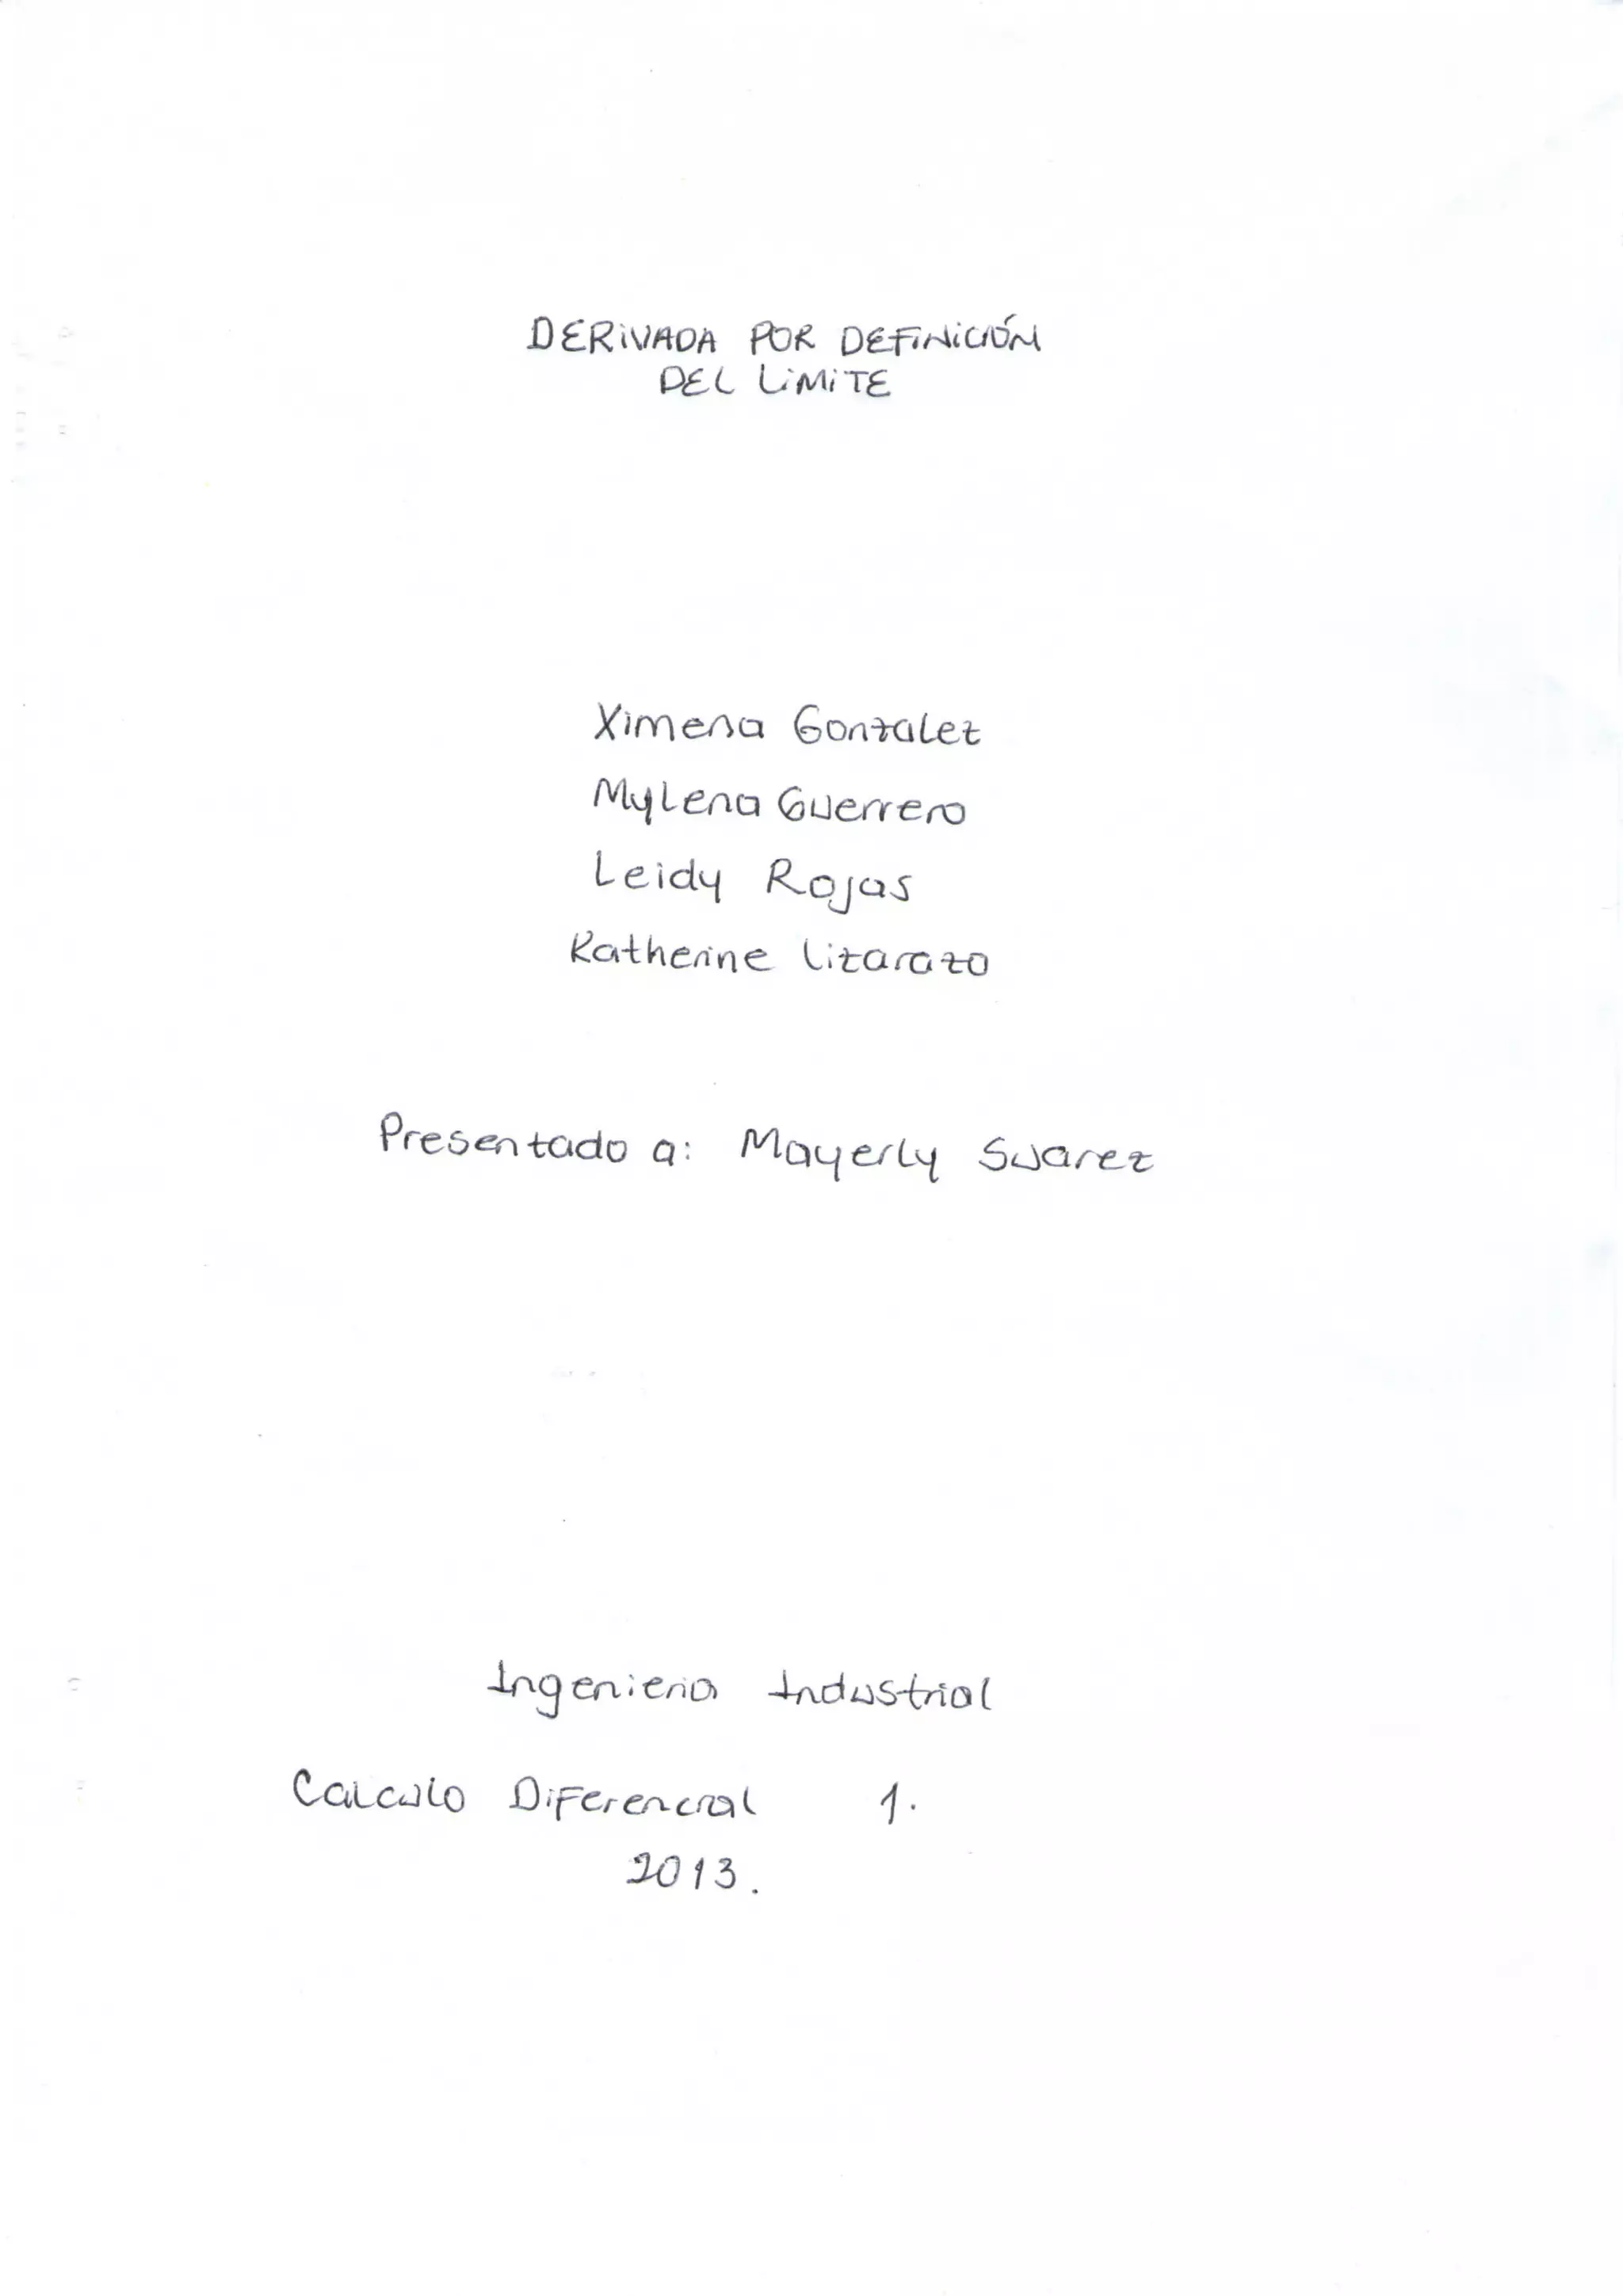 DERiVADA POR DEFiNiCIÓN
DEL LiMiTE
Ximena Gonzalez
Mylena Guerrero
Leidy Rojas
Katherine Lizarazo
Presentado a: Mayerly Suarez
Ingenieria Industrial
Calculo Diferencial 1.
2013.